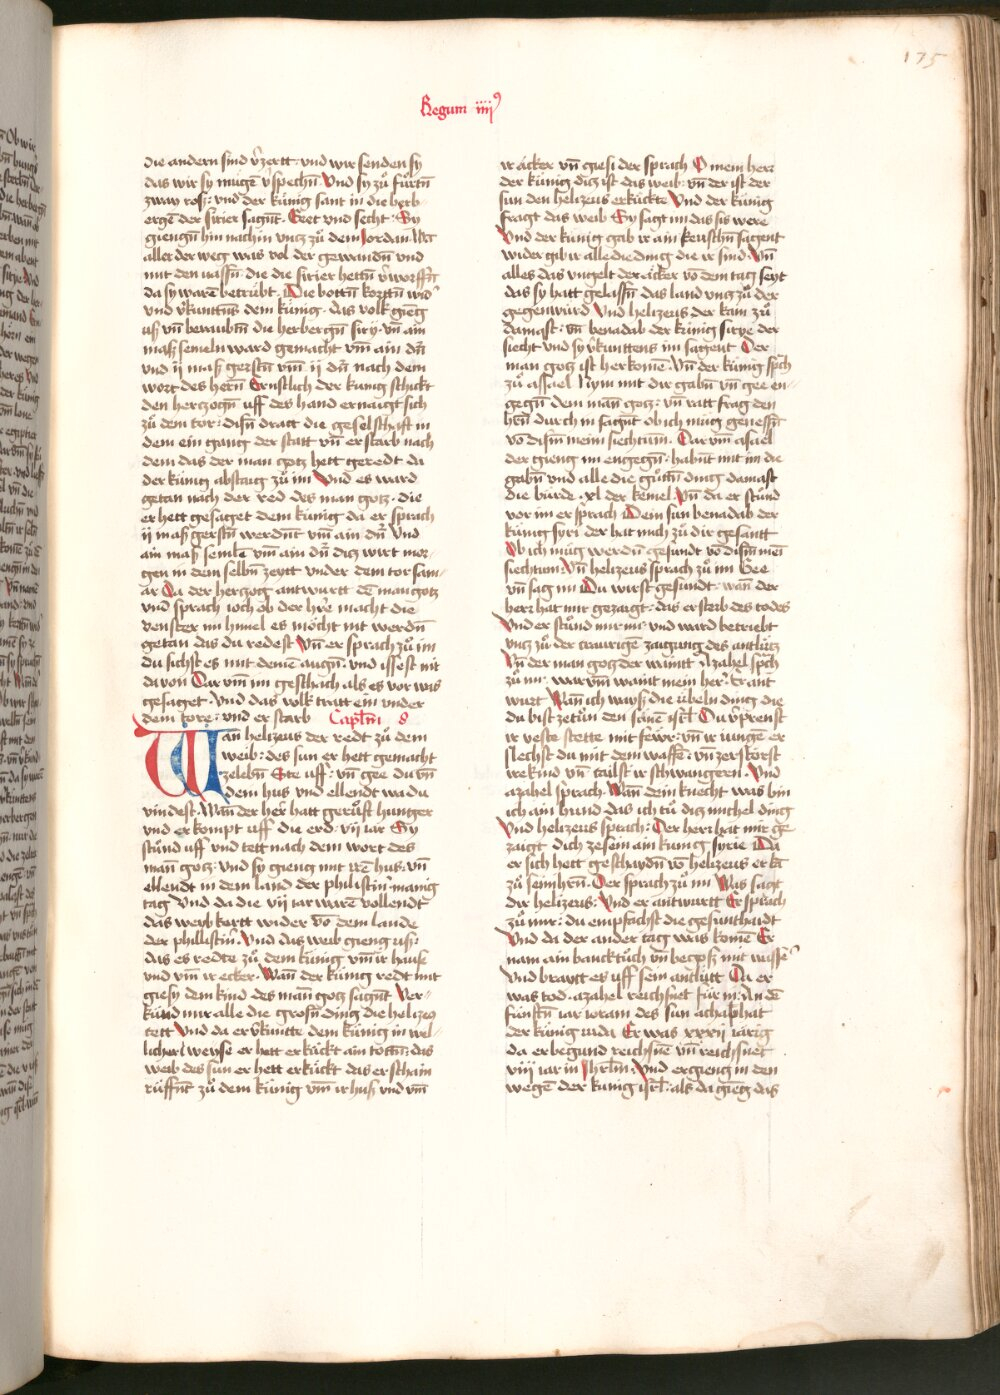 175
Regum iiijꝰ
die andern sind v̓zertt · vnd wir senden sy
das wir sy mügē v̓spechn̄ · Vnd sy zů fůrtn̄
zway ross : vnd der künig sant in die herb-
ergē der sirier sagn̄t · Geet vnd secht · Sy
giengn̄ hin nach in vntz zů dem Jordan Wā
aller der weg was vol der gewandn̄ vnd
mit den vassn̄ · die die sirier hettn̄ v̓worffn̄
da sy warē betrübt · Die bottn̄ kortn̄ wid̓
vnd v̓kunttn̄s dem künig · das volk gieng
us vn̄ beraubtn̄ die herbergn̄ sirÿ · vn̄ ain
maß semeln ward gemacht vm̄ ain dn̄
vnd ij maß gerstn̄ vm̄ ij dn̄ nach dem
wort des herrn̄ Ernstlich der künig schickt
den hertzogn̄ uff des hand er naigt sich
zů dem tor : disn̄ dratt die geselschaft in
dem ein gang der statt vn̄ er starb nach
dem das der man gotz hett geredt da
der künig abstaig zů im Vnd es ward
getan nach der red des man gotz · die
er hett gesaget dem künig da er sprach
ij maß gerstn̄ werdn̄t vm̄ ain dn̄ Vnd
ain maß semle vm̄ ain dn̄ ditz wirt mor-
gen in dem selbn̄ zeytt vnder dem tor sam-
ar Da der hertzog antwurtt dē man gotz
vnd sprach ioch ob der hr̄e macht die
venster im himel es möcht nit werdn̄
getan das du redest Vn̄ er sprach zů im
du sichst es mit deinē augn̄ : vnd issest nit
da von Dar vm̄ im geschach als es vor was
gesaget · Vnd das volk tratt ein vnder
dem tore : vnd er starb Capl̄m 8
Wan helizeus der redt zů dem
weib : des sun er hett gemacht
zelebn̄ Ste uff : vn̄ gee du vn̄
dem hus vnd ellendt wa du
vindest · Wan der her hatt gerůft hunger
vnd er kompt uff die erd · vij iar Sy
stůnd uff vnd tett nach dem wort des
man gotz : vnd sy gieng mit irē hus · vn̄
ellendt in dem land der philistin̄ · manig
tag Vnd da die vij iar warē vollendt
das weyb kertt wider vō dem lande
der phillistin̄ · Vnd das weib gieng us :
das es redte zů dem künig vm̄ ir haus
vnd vm̄ ir ecker · Wan der künig redt mit
giesy dem kind des man gotz sagn̄t Ver-
künd mir alle die grosn̄ ding die helizeus
tett Vnd da er v̓kuntte dem künig in wel-
licher weyse er hett erkückt ain tottn̄ : das
weib des sun er hett erkückt das erschain
rüffn̄t zů dem künig vm̄ ir hus vnd vm̄
ir äcker vn̄ giesi der sprach O mein herr
der künig ditz ist das weib : vn̄ der ist der
sun den helizeus erkückte Vnd der künig
fragt das weib Sy sagt im das sis were
Vnd der künig gab ir ain keuschn̄ sagent
wider gib ir alle die ding die ir sind · Vn̄
alles das vngelt der äcker vō dem tag seyt
das sy hatt gelassn̄ das land vntz zů der
gegenwürd Vnd helizeus der kam zů
damast : vn̄ benadab der künig sirye der
siecht vnd sy v̓kunttens im sagent Der
man gotz ist her komē · Vn̄ der künig sp̄ch
zů assael Nym mit dir gabn̄ vn̄ gee en-
gegn̄ dem man gotz : vn̄ ratt frag den
hrn̄ durch in sagn̄t ob ich müg genessn̄
vō disn̄ meim siechtum̄ · Dar vm̄ asael
der gieng im engegn̄ : habn̄t mit im die
gabn̄ vnd alle die gůttn̄ ding damast
die bürde · xl der kemel · Vn̄ da er stůnd
vor im er sprach Dein sun benadab der
künig syri der hat mich zů dir gesantt
Ob ich müg werdn̄ gesundt vō disn̄ meī
siechtum · Vn̄ helizeus sprach zů im Gee
vn̄ sag im Du wirst gesundt : wan der
herr hat mir gezaigt : das er sterb des todes
Vnd er stůnd mir mir · vnd ward betriebt
vntz zů der traurigē zaigung des antlütz
Vn̄ der man gotz der waintt Azahel sp̄ch
zů im · warvm̄ waint mein her : Er ant
wurt Wan ich wayß die übeln ding die
du bist zetůn den sünē isrl̄ Du v̓prenst
ir veste stette mit fewr : vn̄ ir iungē er
slechst du mit dem waffē : vn̄ zerstörst
ire kind vn̄ tailst ir schwangern · Vnd
azahel sprach · Wan dein knecht was bin
ich ain hund das ich tů ditz michel ding
Vnd helizeus sprach : Der herr hat mir ge
zaigt dich zesein ain künig syrie Da
er sich hett geschaydn̄ vō helizeus er kā
zů seim hrn̄ · Der sprach zů im Was sagt
dir helizeus : Vnd er antwurtt Er sprach
zů mir : du empfachst die gesunthaidt
Vnd da der ander tag was komē Er
nam ain bancktůch vn̄ begoß mit wasser
Vnd braytt es uff sein antlütt Da er
was tod · azahel reichsnet für in : An dē
fünftn̄ iar ioram des sun achab hat
der künig iuda Er was xxxij iarig
da er begund reichsnē vn̄ reichsnet
viij iar in Jhrl̄m : Vnd er gieng in den
wegen der künig isrl̄ : als da gieng das